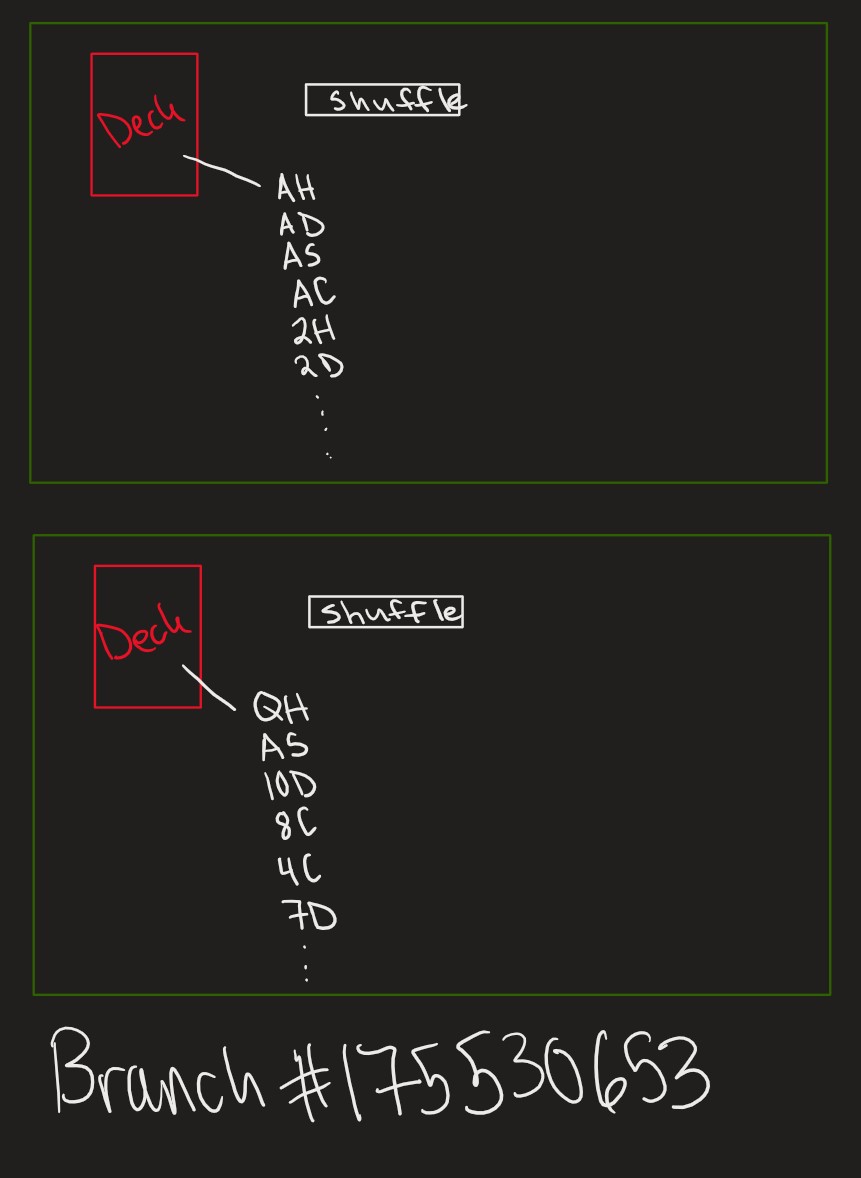 Deck
shuffle
AH
AD
AS
AC
2H
2D
Deck
shuffle
QH
AS
10D
8C
4C
7D
Branch #175530653